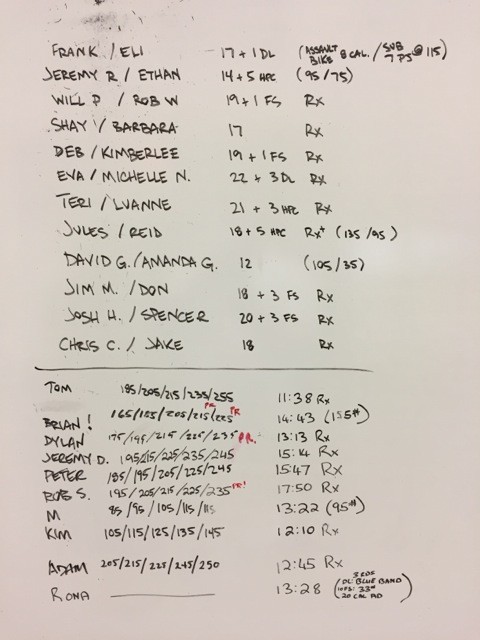 FRANK / ELI 17 + 1 DL (ASSAULT BIKE 8 CAL. / SUB 7 PS @ 115)
JEREMY R / ETHAN 14 + 5 HPC (95 / 75)
WILL P / ROB W 19 + 1 FS Rx
SHAY / BARBARA 17 Rx
DEB / KIMBERLEE 19 + 1 FS Rx
EVA / MICHELLE N. 22 + 3 DL Rx
TERI / LUANNE 21 + 3 HPC Rx
JULES / REID 18 + 5 HPC Rx+ (135 / 95)
DAVID G. / AMANDA G. 12 (105 / 35)
JIM M. / DON 18 + 3 FS Rx
JOSH H. / SPENCER 20 + 3 FS Rx
CHRIS C. / JAKE 18 Rx
TOM 185/205/215/235/255 11:38 Rx
BRIAN! 165/185/205/215 PR/225 PR 14:43 (155#)
DYLAN 175/195/215/225/235 PR. 13:13 Rx
JEREMY D. 195/215/225/235/245 15:14 Rx
PETER 185/195/205/225/245 15:47 Rx
ROB S. 195/205/215/225/235 PR! 17:50 Rx
M 85/95/105/115/115 13:22 (95#)
KIM 105/115/125/135/145 12:10 Rx
ADAM 205/215/225/245/250 12:45 Rx
RONA 13:28 (3 RDS
DL: BLUE BAND
33#
20 CAL AD)